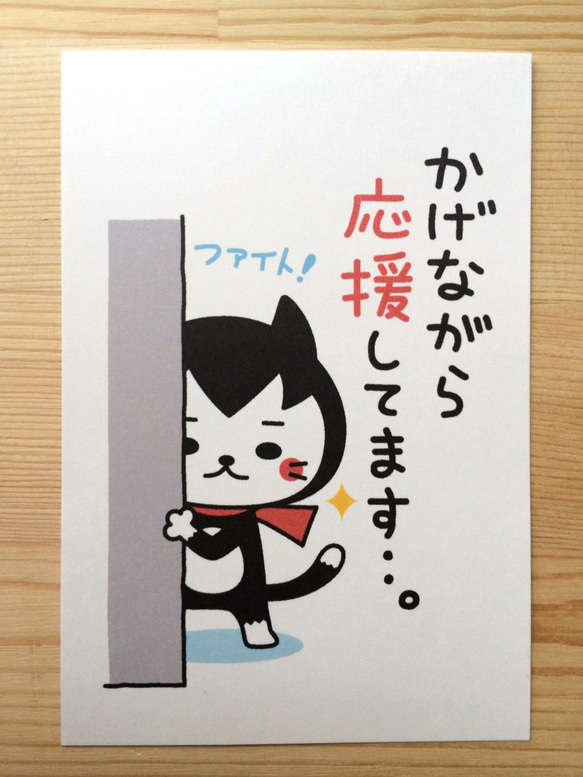 かげながら
応援してます…。
ファイト!